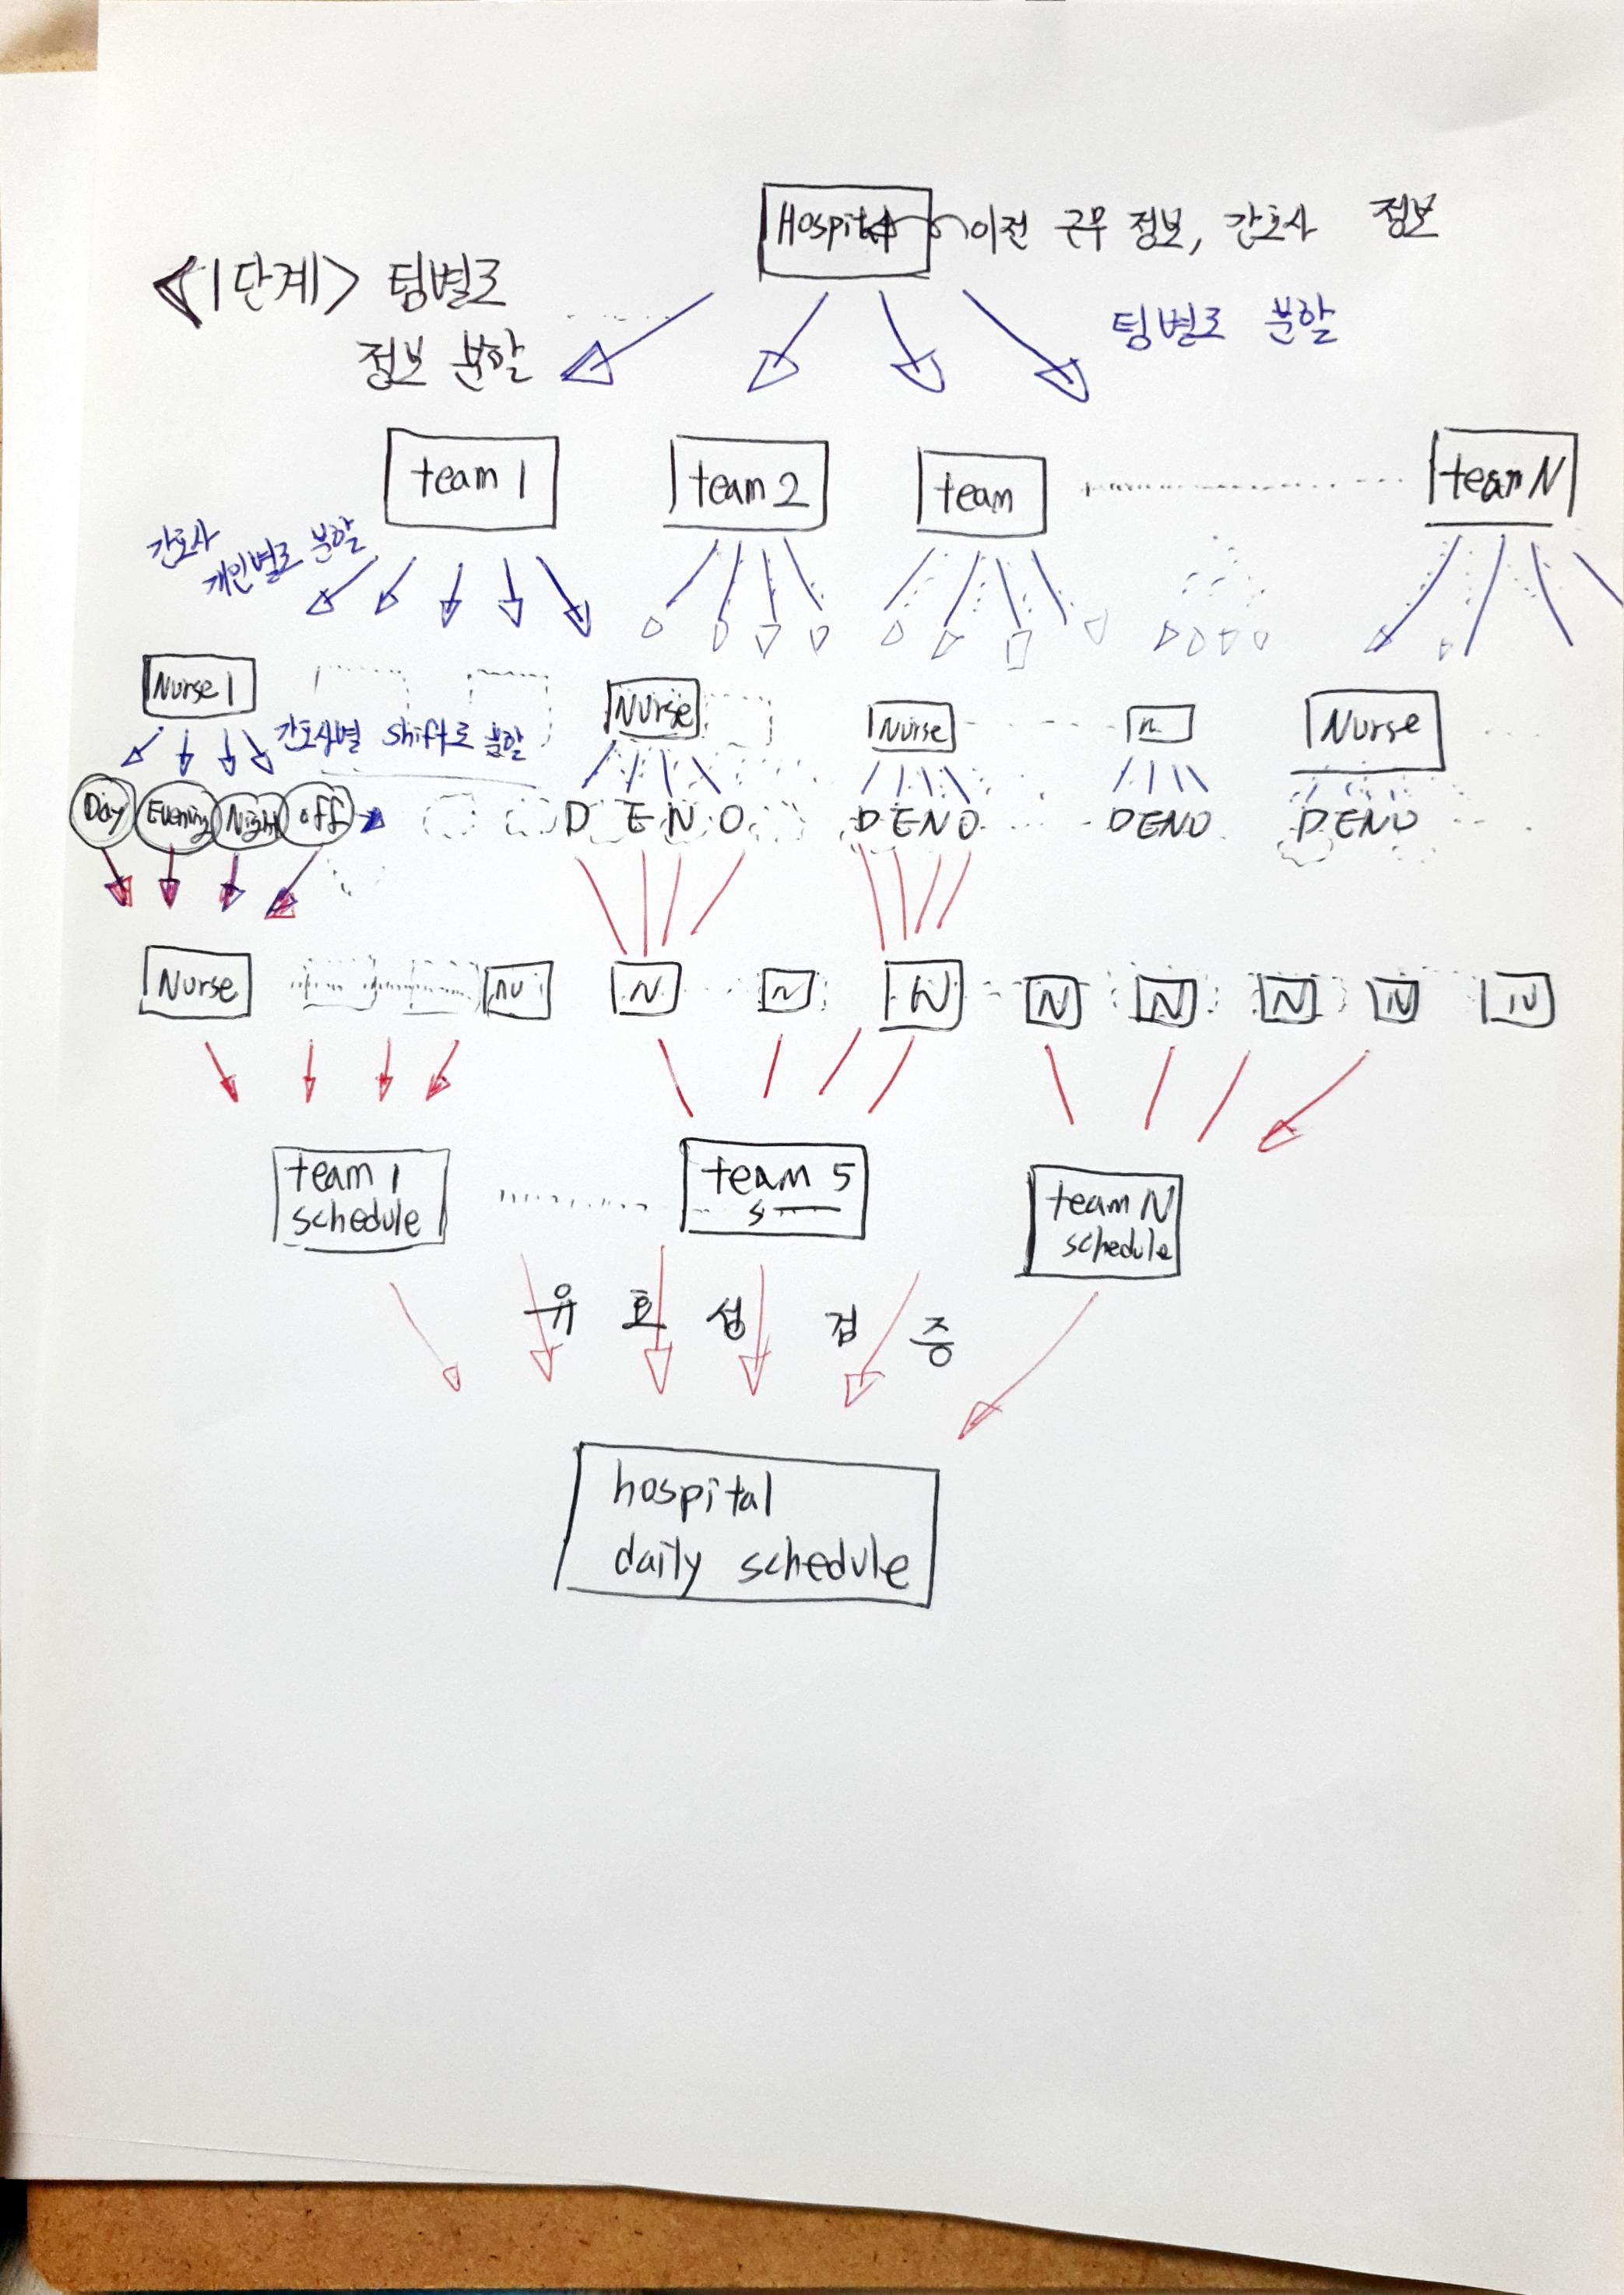 Hospital 이전 근무 정보, 간호사 정보
<1단계> 팀별로
정보 분할
팀별로 분할
team 1
team 2
team
team N
간호사
개인별로 분할
Nurse 1
Nurse
Nurse
n
Nurse
간호사별 shift로 분할
Day Evening Night off
D E N O
D E N O
D E N O
D E N O
Nurse
nu
N
n
N
N
N
N
N
N
team 1
schedule
team 5
s
team N
schedule
유 효 성 검 증
hospital
daily schedule